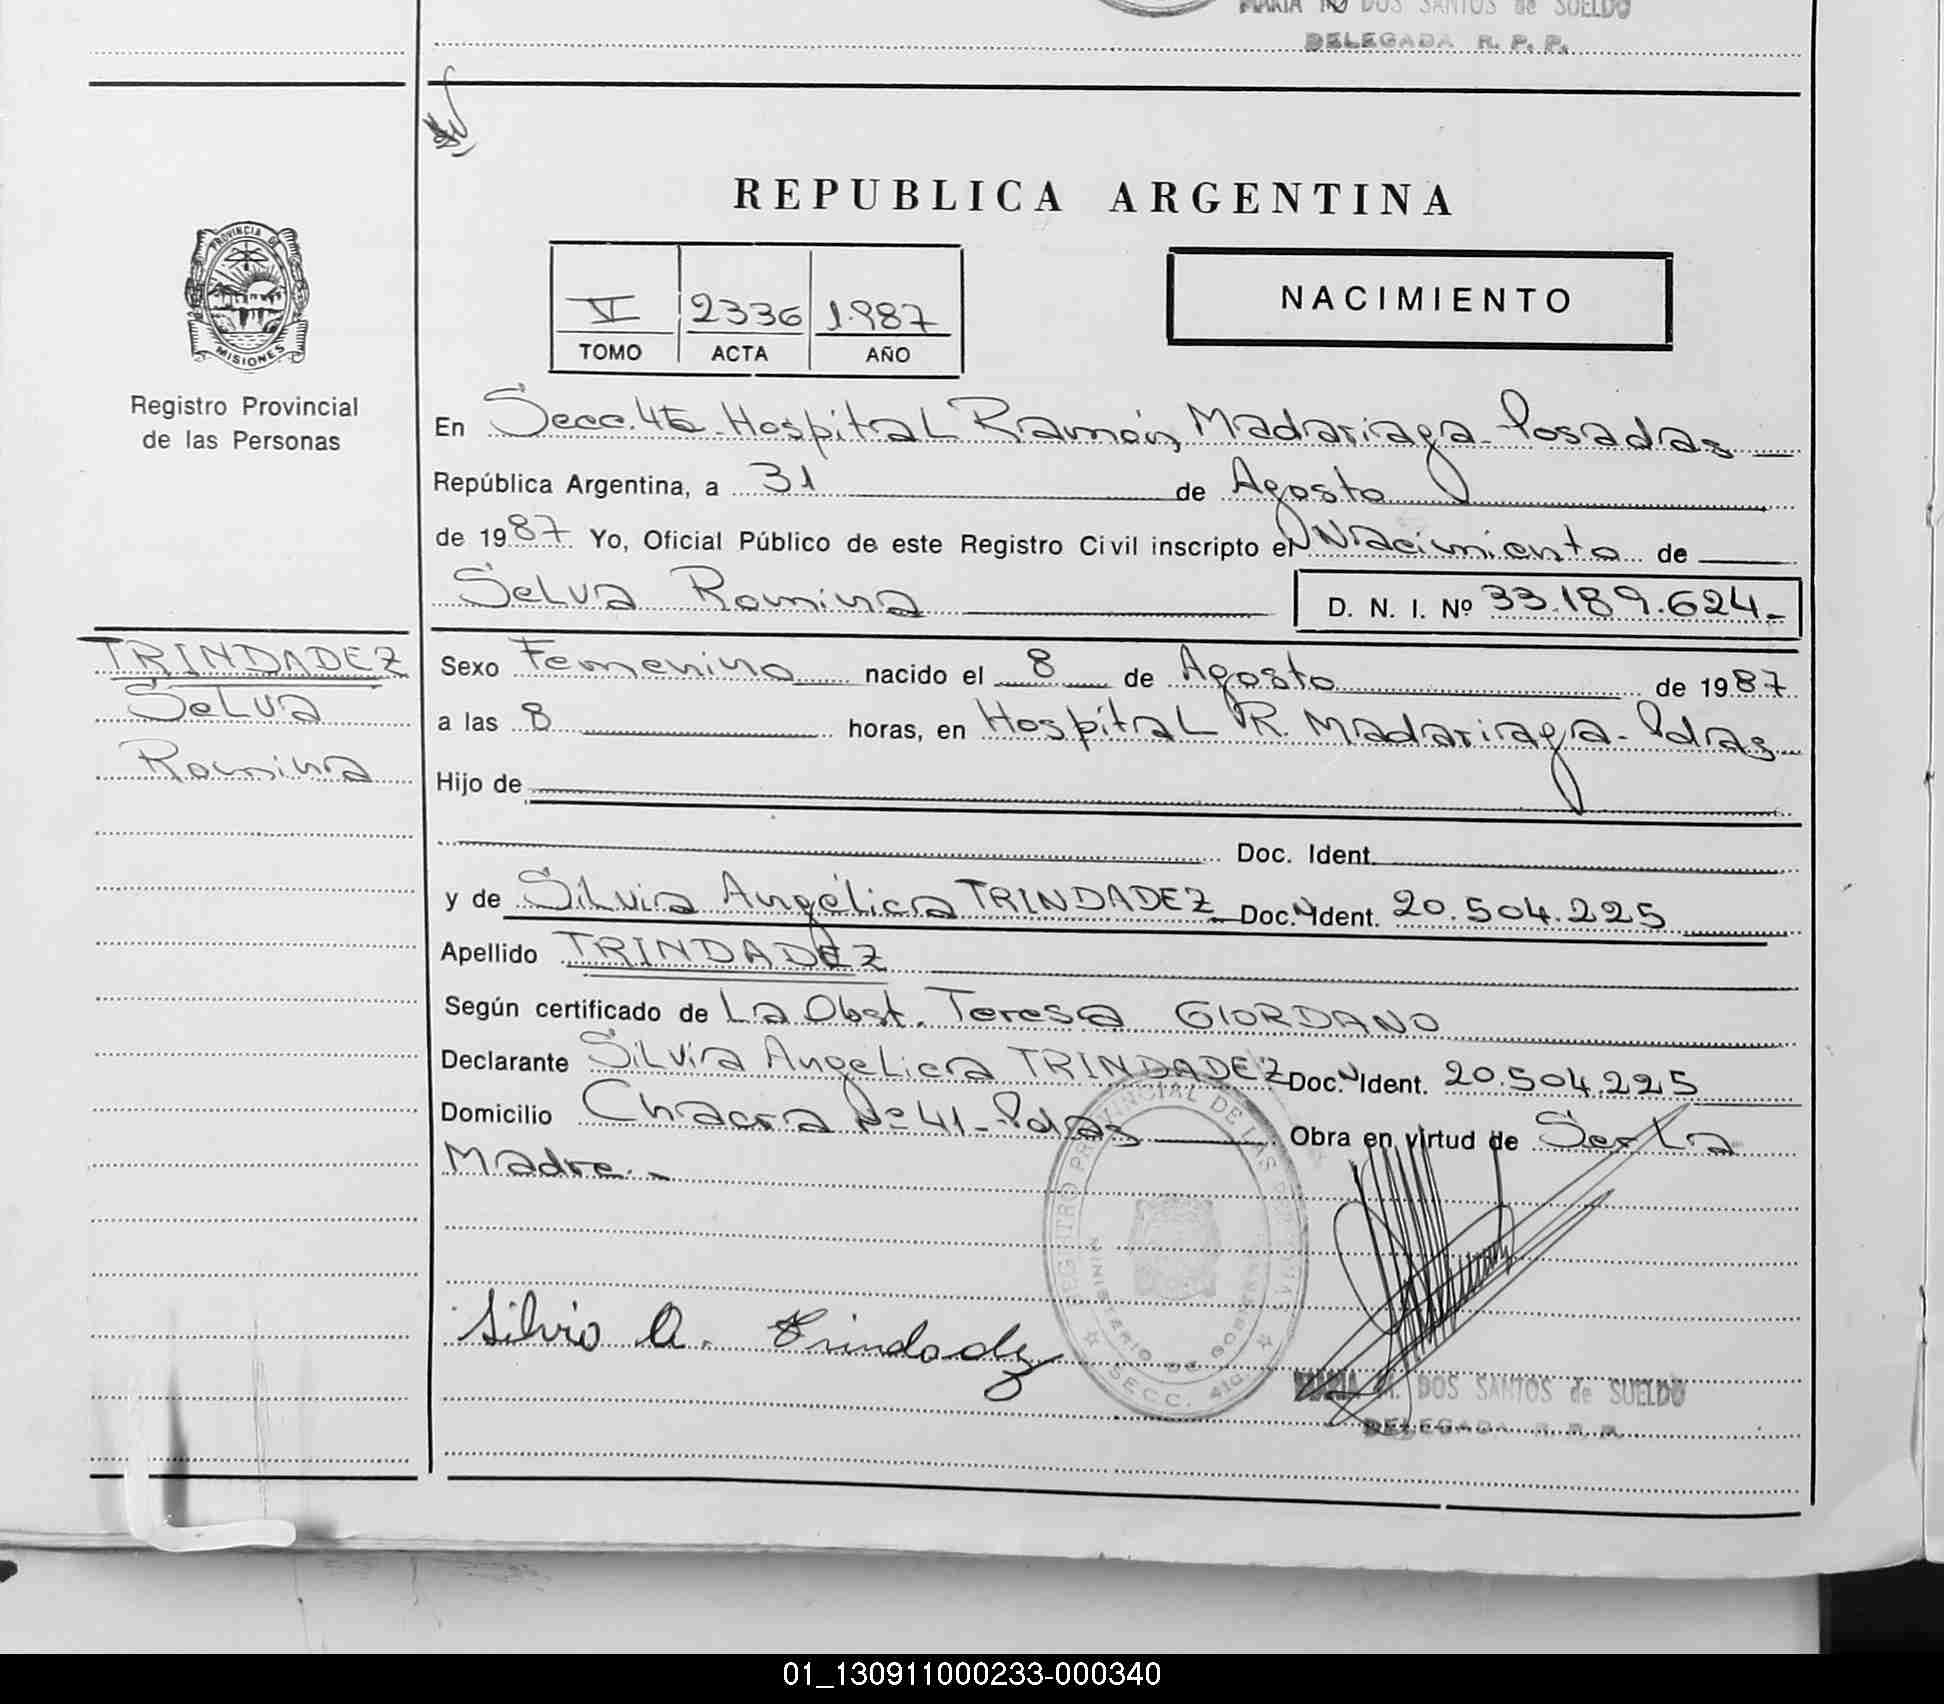 MARIA M. DOS SANTOS de SUELDO
DELEGADA R. P. P.
REPUBLICA ARGENTINA
PROVINCIA DE
MISIONES
Registro Provincial
de las Personas
V 2336 1987
TOMO ACTA AÑO
NACIMIENTO
En Secc. 4ta Hospital Ramón Madariaga - Posadas
República Argentina, a 31 de Agosto
de 1987 Yo, Oficial Público de este Registro Civil inscripto el Nacimiento de
Selva Romina D. N. I. Nº 33.189.624-
TRINDADEZ
Selva
Romina
Sexo Femenino nacido el 8 de Agosto de 1987
a las 8 horas, en Hospital R. Madariaga - Pdas
Hijo de
Doc. Ident.
y de Silvia Angélica TRINDADEZ Doc. Ident. 20.504.225
Apellido TRINDADEZ
Según certificado de La Obst. Teresa GIORDANO
Declarante Silvia Angelica TRINDADEZ Doc. Ident. 20.504.225
Domicilio Chacra Nº 41 - Pdas Obra en virtud de Ser La
Madre.-
REGISTRO PROVINCIAL DE LAS PERSONAS
MINISTERIO DE GOBIERNO
SECC. 4ta.
Silvia A. Trindadez
MARIA M. DOS SANTOS de SUELDO
DELEGADA R. P. P.
01_130911000233-000340